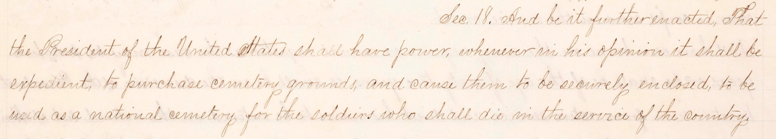 Sec. 18. And be it further enacted, That
the President of the United States shall have power, whenever in his opinion it shall be
expedient, to purchase cemetery grounds, and cause them to be securely enclosed, to be
used as a national cemetery for the soldiers who shall die in the service of the country.